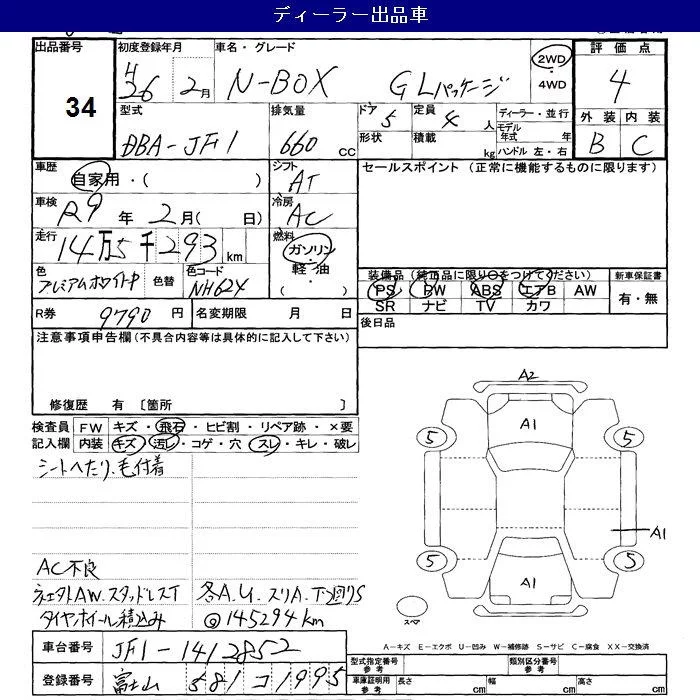 ディーラー出品車
出品番号 初度登録年月 車名・グレード 評価点
34 H26 2月 N-BOX GLパッケージ 2WD ・ 4WD 4
型式 排気量 ドア 定員 ディーラー・並行 外装 内装
DBA-JF1 660 CC 5 4 人 モデル年式 年 B C
形状 積載 kg ハンドル 左・右
車歴 シフト セールスポイント (正常に機能するものに限ります)
自家用・( ) AT
車検 冷房
R9 年 2 月( 日) AC
走行 燃料
14万5千293 km ガソリン・軽油・( )
色 色替 色コード 装備品(純正品に限り○をつけてください) 新車保証書
プレミアムホワイトP NH624 PS PW ABS エアB AW 有・無
SR ナビ TV カワ
R券 9790 円 名変期限 月 日 後日品
注意事項申告欄(不具合内容等は具体的に記入して下さい)
修復歴 有 〔箇所 〕
検査員 FW キズ・飛石・ヒビ割・リペア跡・×要
記入欄 内装 キズ・汚レ・コゲ・穴・スレ・キレ・破レ
シートヘたり、毛付着
A2
A1
5 5
A1
5 5
A1
AC不良
AW.スタッドレスT
タイヤホイール積込み @145294km
スペア
A-キズ E-エクボ U-凹み W-補修跡 S-サビ C-腐食 XX-交換済
車台番号 JF1-1412852
型式指定番号 参考 類別区分番号 参考
登録番号 富士山 581 コ 1995
車庫証明用 参考 長さ cm 幅 cm 高さ cm